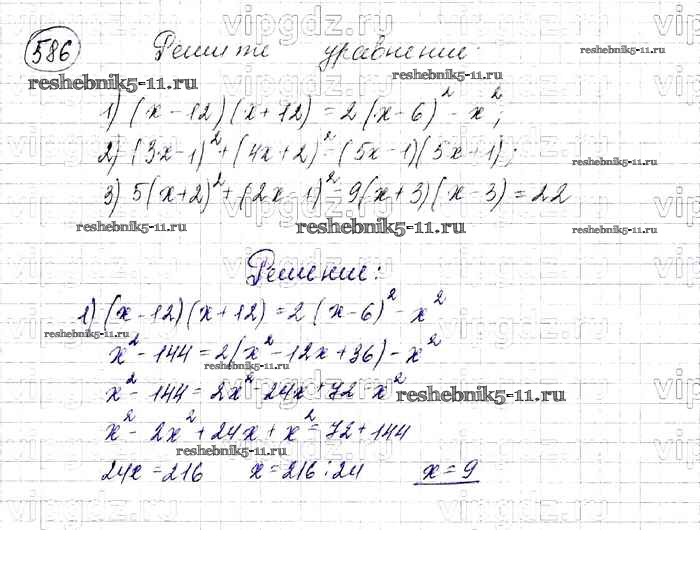 586 Решите уравнение:
1) (x-12)(x+12)=2(x-6)²-x²;
2) (3x-1)²+(4x+2)²=(5x-1)(5x+1);
3) 5(x+2)²+(2x-1)²-9(x+3)(x-3)=22
Решение:
1) (x-12)(x+12)=2(x-6)²-x²
x²-144=2(x²-12x+36)-x²
x²-144=2x²-24x+72-x²
x²-2x²+24x+x²=72+144
24x=216 x=216:24 x=9
vipgdz.ru
reshebnik5-11.ru